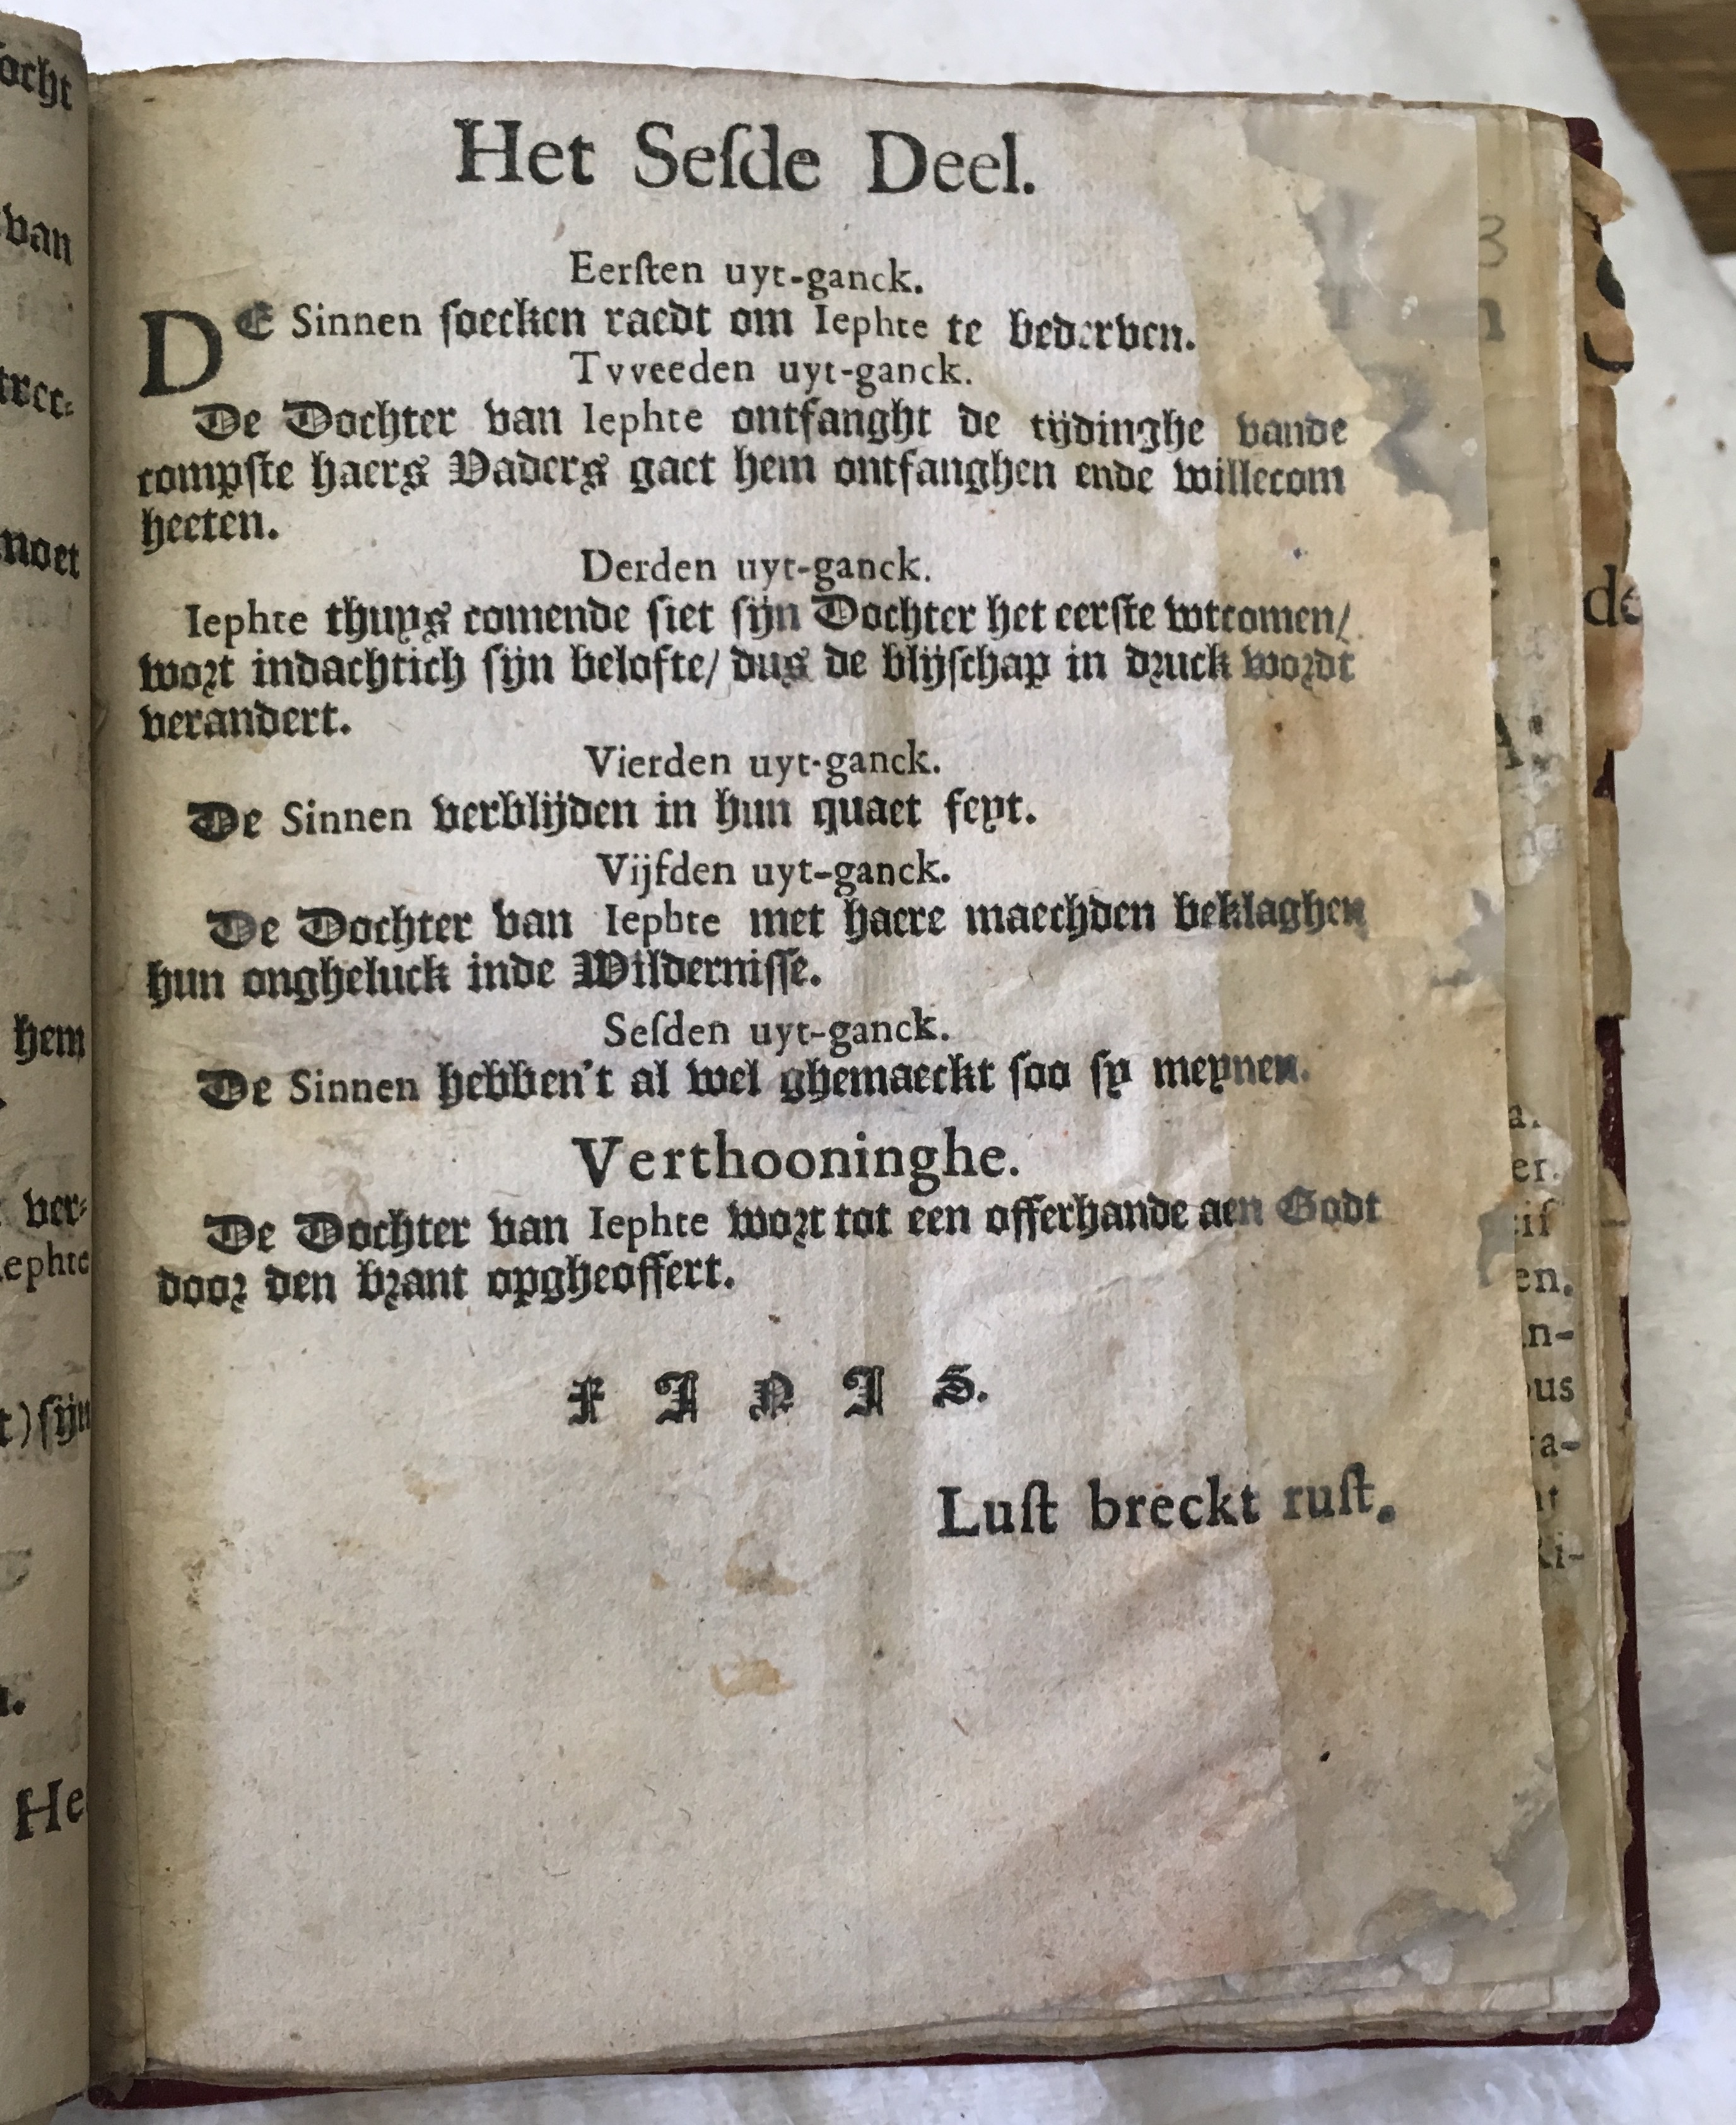 Het Seſde Deel.
Eerſten uyt-ganck.
DE Sinnen ſoecken raedt om Iephte te bederven.
Tvveeden uyt-ganck.
De Dochter van Iephte ontfanght de tijdinghe vande
compſte haers Vaders gaet hem ontfanghen ende willecom
heeten.
Derden uyt-ganck.
Iephte thuys comende ſiet ſijn Dochter het eerſte wtcomen/
wort indachtich ſijn belofte/ dus de blijſchap in druck wordt
verandert.
Vierden uyt-ganck.
De Sinnen verblijden in hun quaet feyt.
Vijfden uyt-ganck.
De Dochter van Iephte met haere maechden beklaghen
hun ongheluck inde Wilderniſſe.
Seſden uyt-ganck.
De Sinnen hebben't al wel ghemaeckt ſoo ſy meynen.
Verthooninghe.
De Dochter van Iephte wort tot een offerhande aen Godt
door den brant opgheoffert.
F I N I S.
Luſt breckt ruſt.
ocht
van
moet
hem
ver-
Iephte
ſijn
He
de